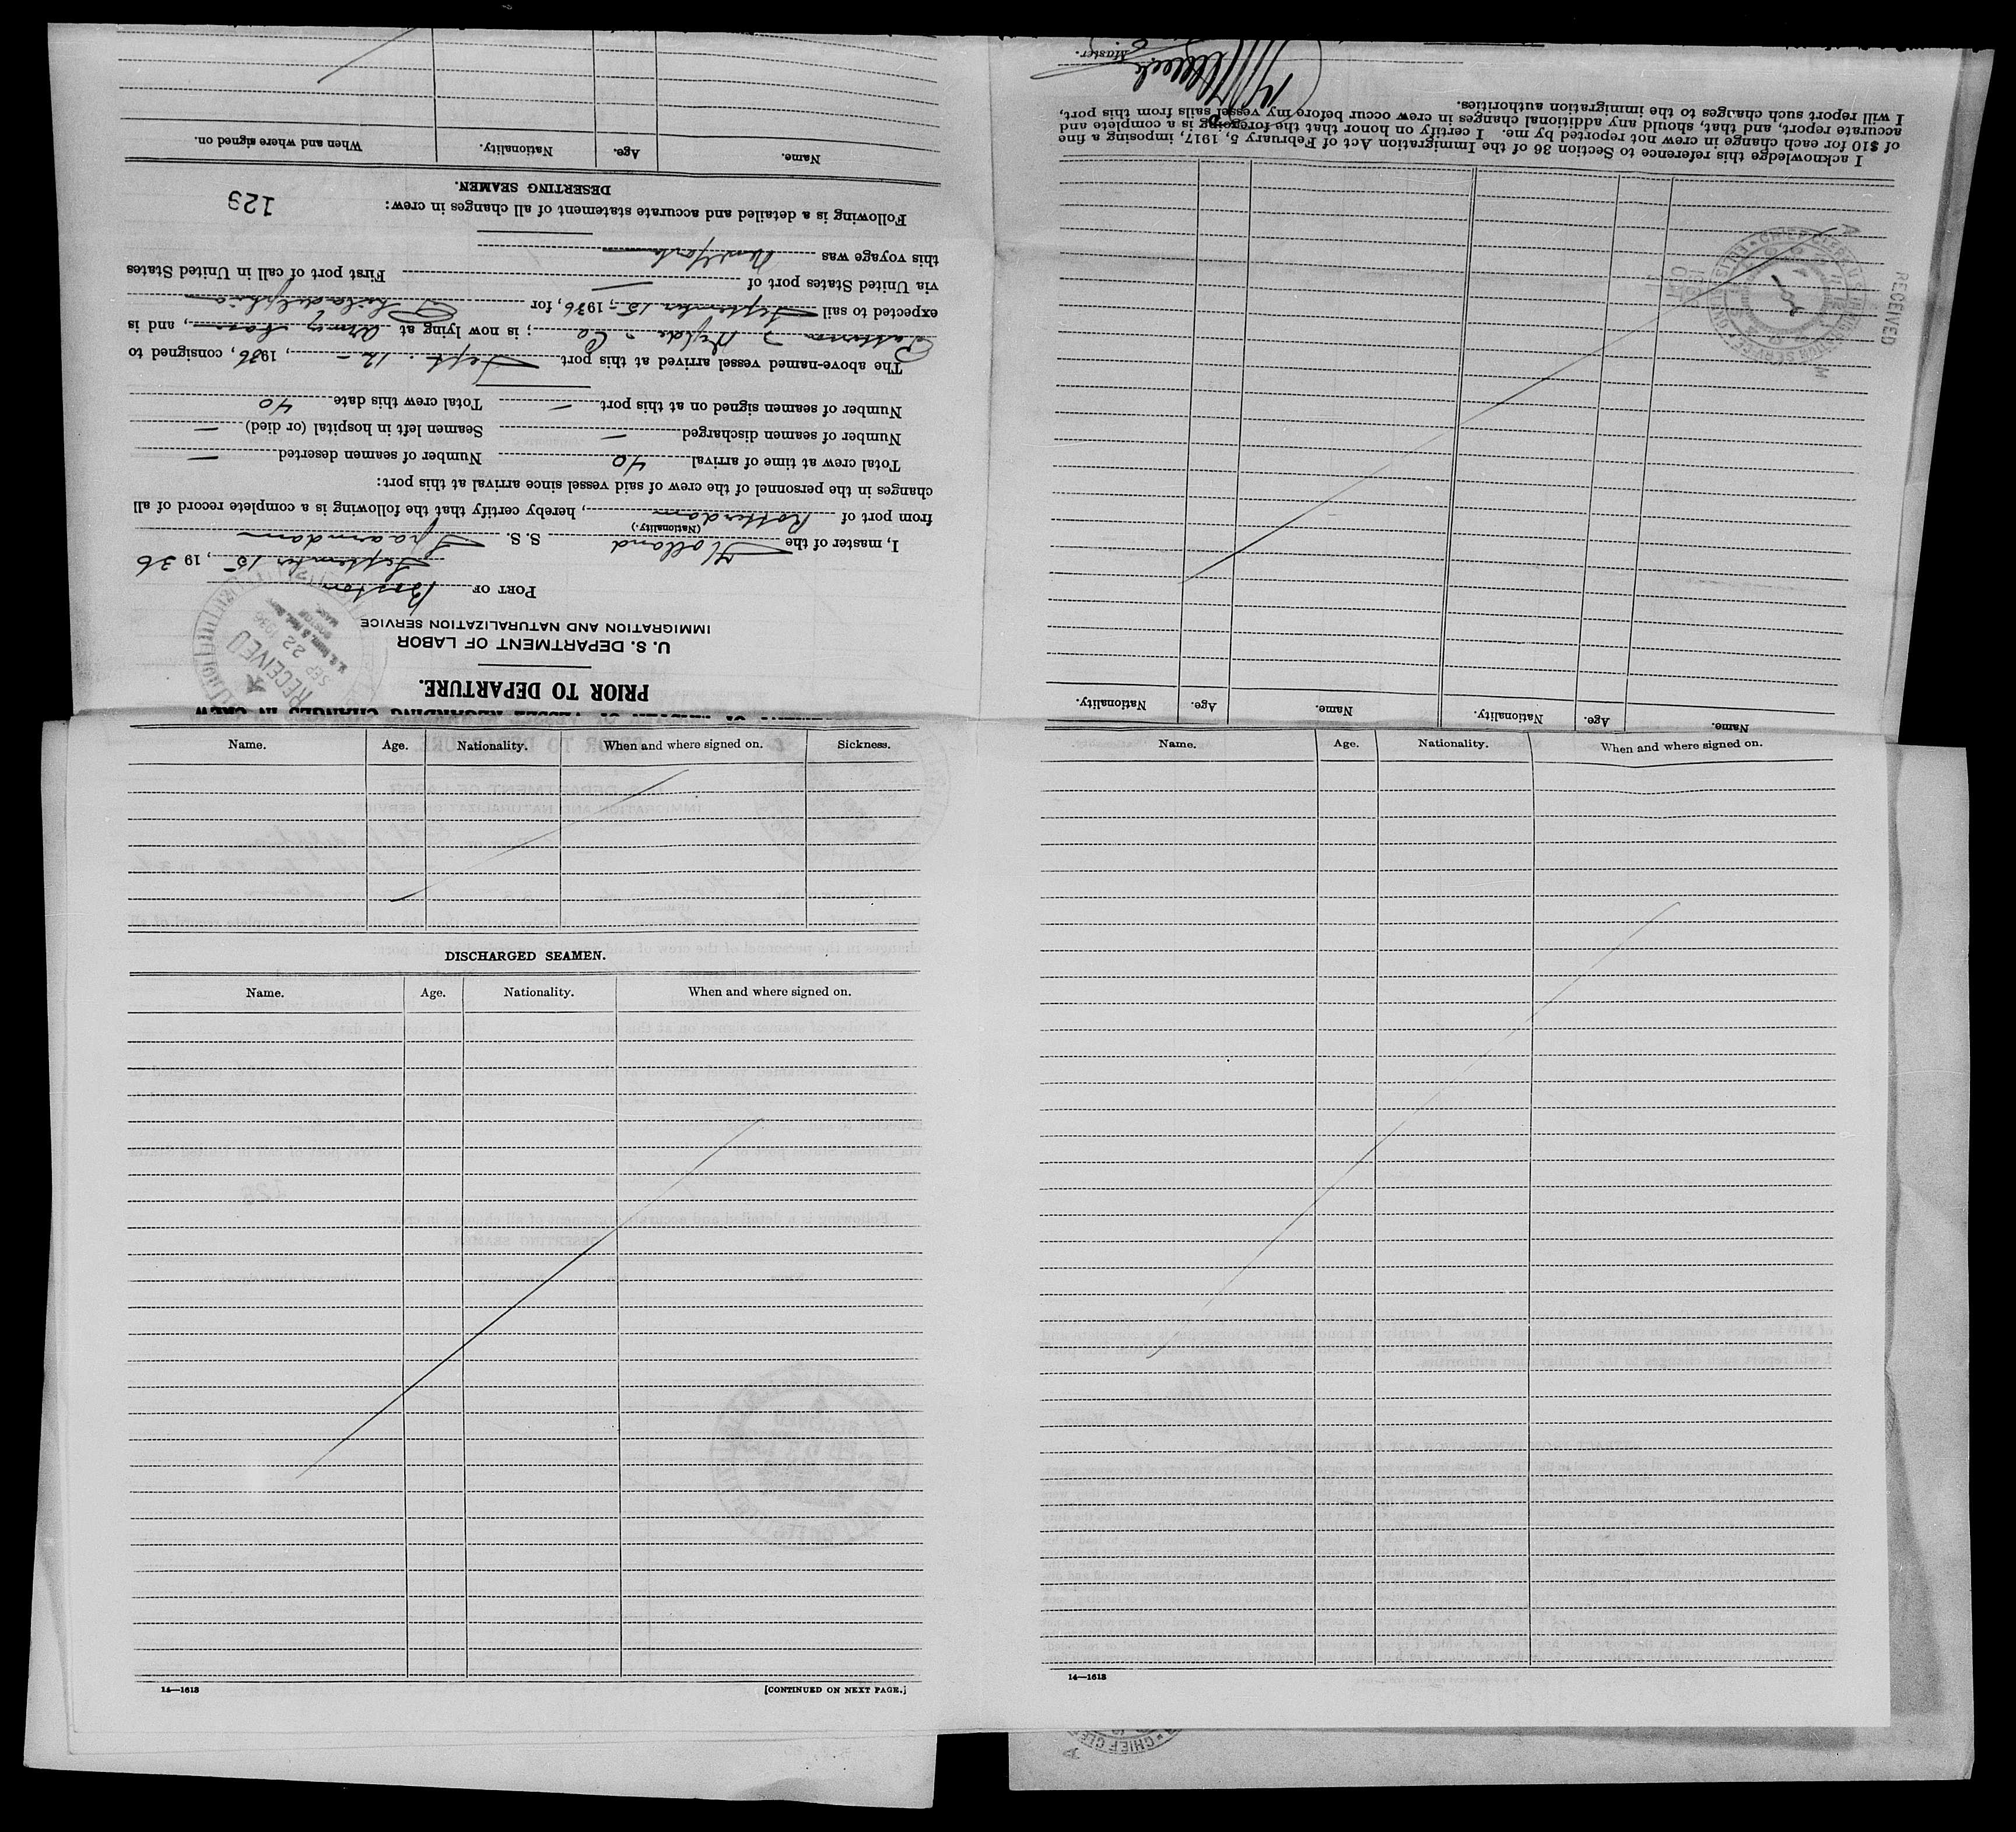 STATEMENT OF MASTER OF VESSEL REGARDING CHANGES IN CREW
PRIOR TO DEPARTURE.
U. S. DEPARTMENT OF LABOR
IMMIGRATION AND NATURALIZATION SERVICE
RECEIVED
SEP 22 1936
BOSTON
MASS.
PORT OF Boston
September 15, 1936
I, master of the Holland S. S. Spaarndam
(Nationality.)
from port of Rotterdam, hereby certify that the following is a complete record of all
changes in the personnel of the crew of said vessel since arrival at this port:
Total crew at time of arrival 40 Number of seamen deserted —
Number of seamen discharged — Seamen left in hospital (or died) —
Number of seamen signed on at this port — Total crew this date 40
The above-named vessel arrived at this port Sept. 12 -, 1936, consigned to
Patterson Wylde & Co; is now lying at Army Base, and is
expected to sail September 15-, 1936, for Philadelphia
via United States port of — First port of call in United States
this voyage was New York
Following is a detailed and accurate statement of all changes in crew:
129
DESERTING SEAMEN.
Name. Age. Nationality. When and where signed on.
Name. Age. Nationality. Name. Age. Nationality.
RECEIVED
CHIEF CLERK U.S. IMMIGRATION SERVICE
I acknowledge this reference to Section 36 of the Immigration Act of February 5, 1917, imposing a fine
of $10 for each change in crew not reported by me. I certify on honor that the foregoing is a complete and
accurate report, and that, should any additional changes in crew occur before my vessel sails from this port,
I will report such changes to the immigration authorities.
Master.
Name. Age. Nationality. When and where signed on. Sickness.
DISCHARGED SEAMEN.
Name. Age. Nationality. When and where signed on.
14—1613 [CONTINUED ON NEXT PAGE.]
Name. Age. Nationality. When and where signed on.
14—1613
CHIEF CLE